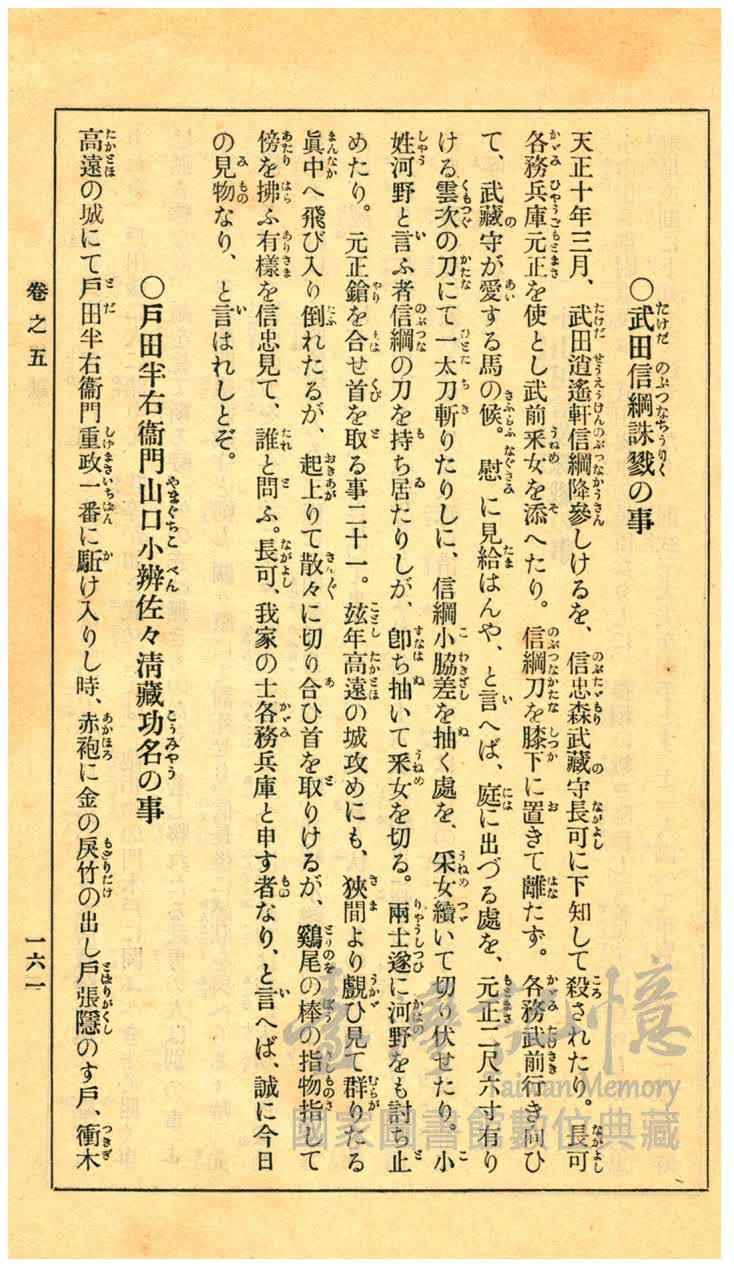 〇武田信綱誅戮の事
天正十年三月、武田逍遙軒信綱降參しけるを、信忠森武藏守長可に下知して殺されたり。長可
各務兵庫元正を使とし武前釆女を添へたり。信綱刀を膝下に置きて離たず。各務武前行き向ひ
て、武藏守が愛する馬の候。慰に見給はんや、と言へば、庭に出づる處を、元正二尺六寸有り
ける雲次の刀にて一太刀斬りたりしに、信綱小脇差を抽く處を、釆女續いて切り伏せたり。小
姓河野と言ふ者信綱の刀を持ち居たりしが、卽ち抽いて釆女を切る。兩士遂に河野をも討ち止
めたり。元正鎗を合せ首を取る事二十一。玆年高遠の城攻めにも、狹間より覰ひ見て群りたる
眞中へ飛び入り倒れたるが、起上りて散々に切り合ひ首を取りけるが、鷄尾の棒の指物指して
傍を拂ふ有樣を信忠見て、誰と問ふ。長可、我家の士各務兵庫と申す者なり、と言へば、誠に今日
の見物なり、と言はれしとぞ。
〇戶田半右衞門山口小辨佐々淸藏功名の事
高遠の城にて戶田半右衞門重政一番に駈け入りし時、赤袍に金の戾竹の出し戶張隱のす戶、衝木
卷之五
一六一
臺灣記憶
Taiwan Memory
國家圖書館數位典藏